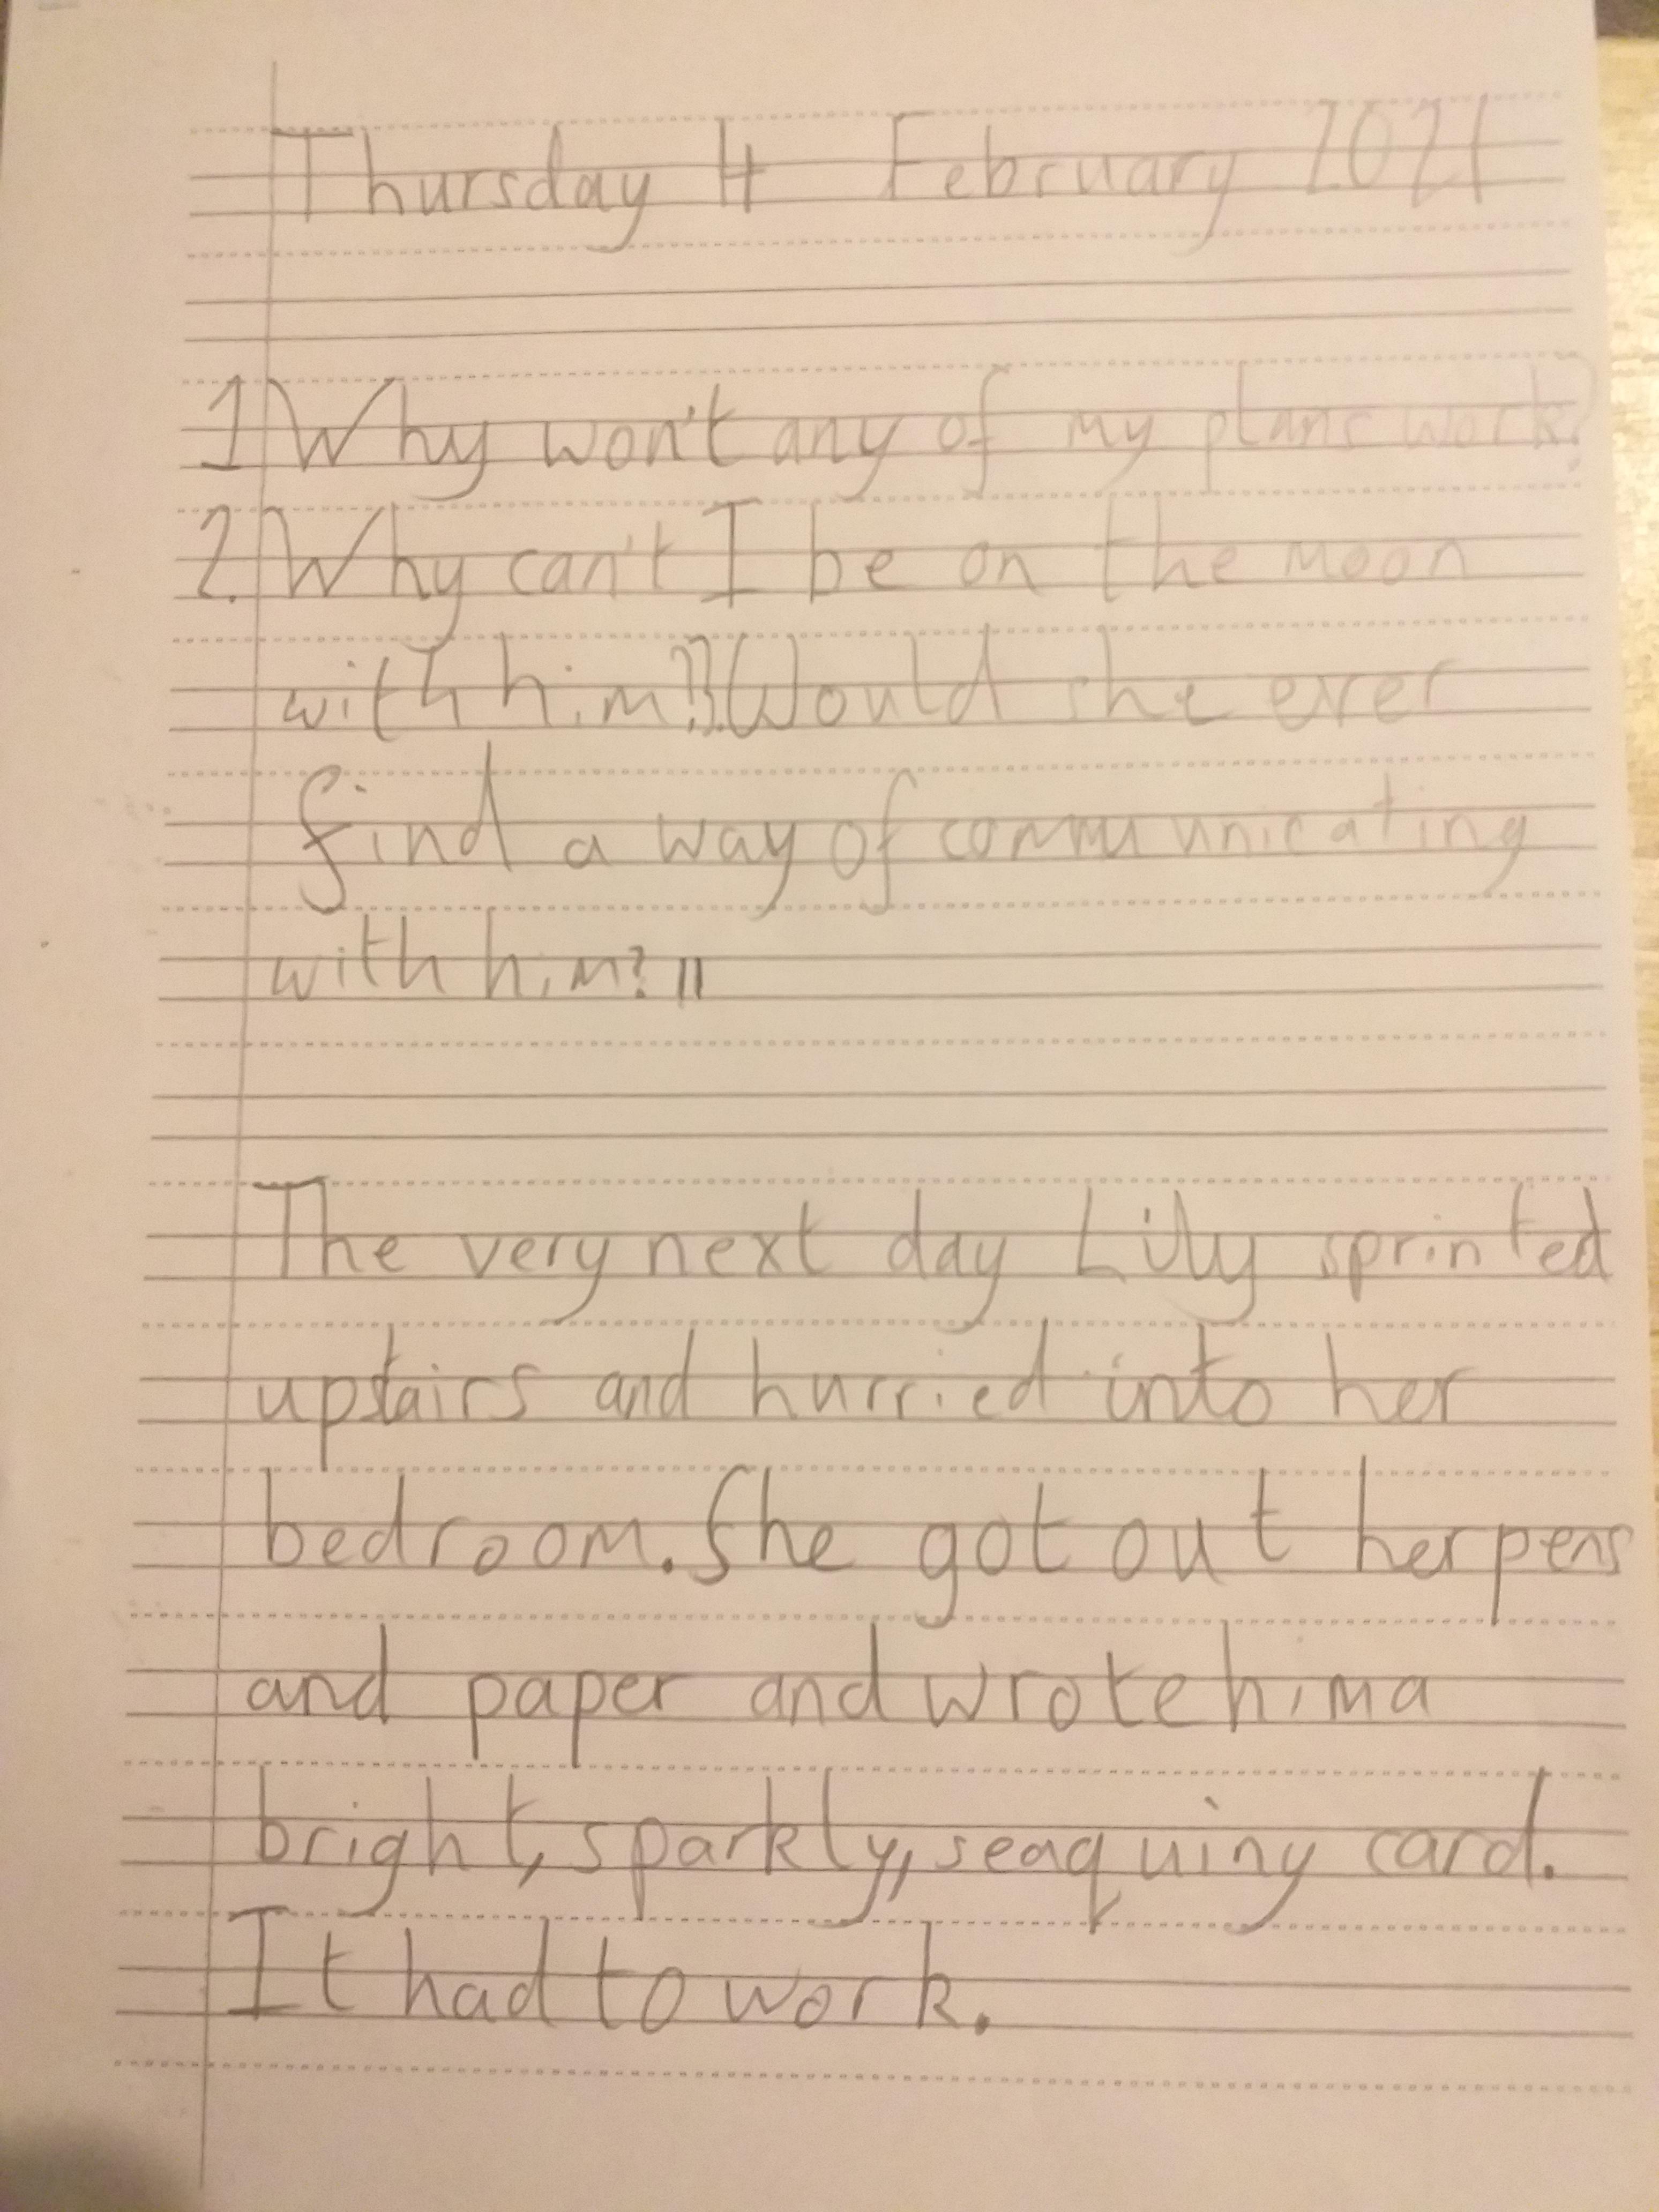 Thursday 4 February 2021
1 Why won't any of my plans work?
2. Why can't I be on the moon
with him?3.Would she ever
find a way of communicating
with him? 11
The very next day Lily sprinted
upstairs and hurried into her
bedroom. She got out her pens
and paper and wrote him a
bright, sparkly, seaquiny card.
It had to work.